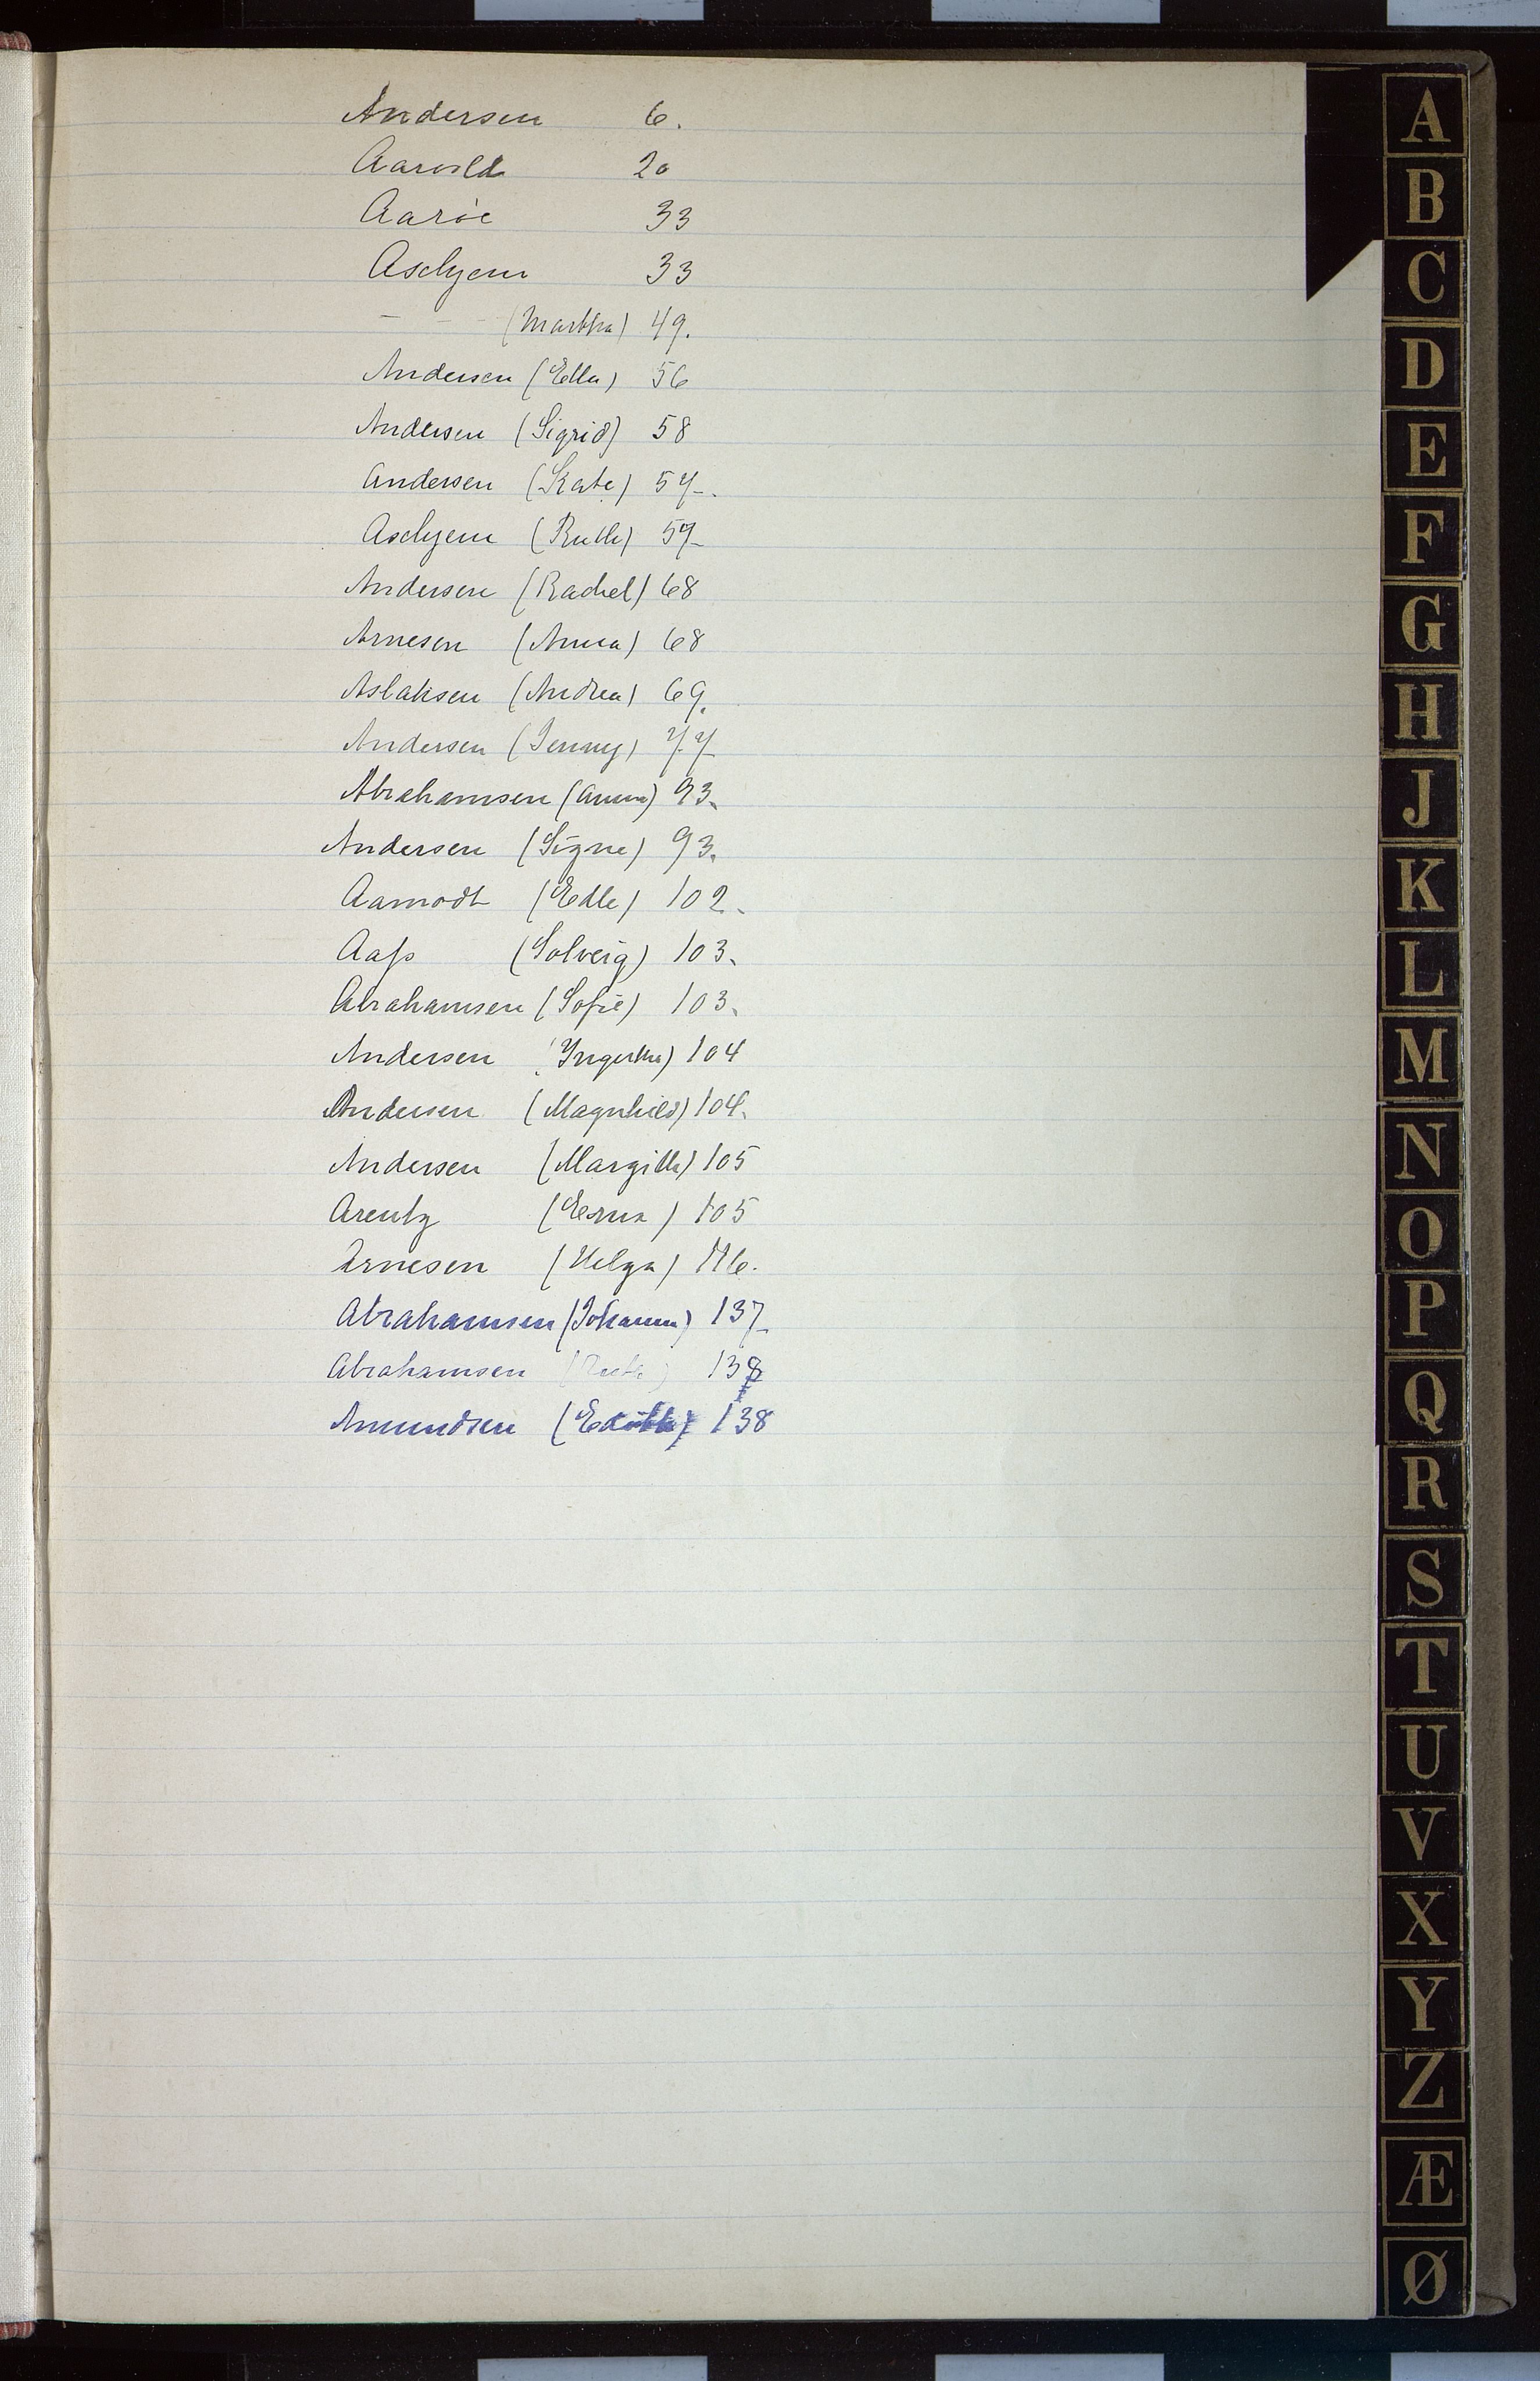 Andersen 6.
Aarvold 20
Aaröe 33
Aschjem 33
— — (Martha) 49.
Andersen (Ella) 56
Andersen (Sigrid) 58
Andersen (Kate) 57.
Aschjem (Ruth) 57
Andersen (Rachel) 68
Arnesen (Anna) 68
Aslaksen (Andrea) 69.
Andersen (Jenny) 77
Abrahamsen (Anna) 93.
Andersen (Signe) 93.
Aamodt (Edle) 102.
Aass (Solveig) 103.
Abrahamsen (Sofie) 103.
Andersen 104
Andersen (Magnhild) 104.
Andersen (Margith) 105
Arentz (Erna) 105
Arnesen (Helga) 116.
Abrahamsen (Johanna) 137
Abrahamsen (Ruth) 138
Amundsen (Edith) 138
A
B
C
D
E
F
G
H
J
K
L
M
N
O
P
Q
R
S
T
U
V
X
Y
Z
Æ
Ø